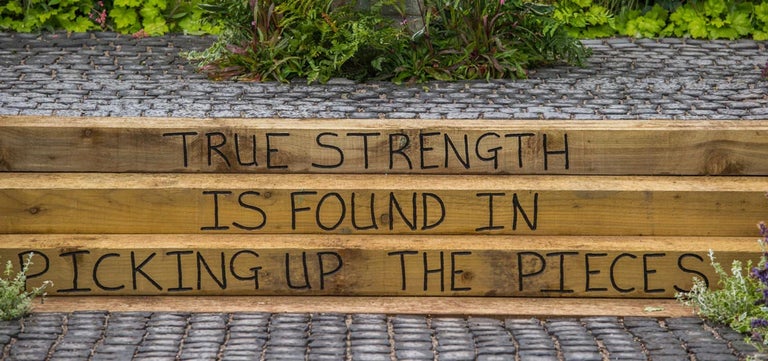 TRUE STRENGTH
IS FOUND IN
PICKING UP THE PIECES